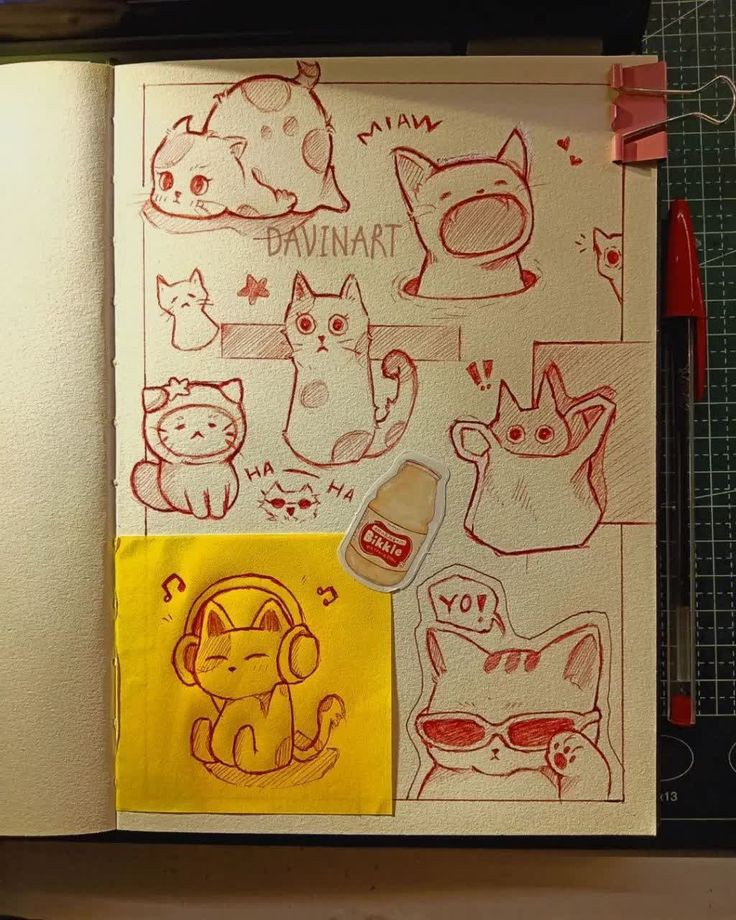 MIAW
DAVINART
!!
HA
HA
Bikkle
YO!
x13